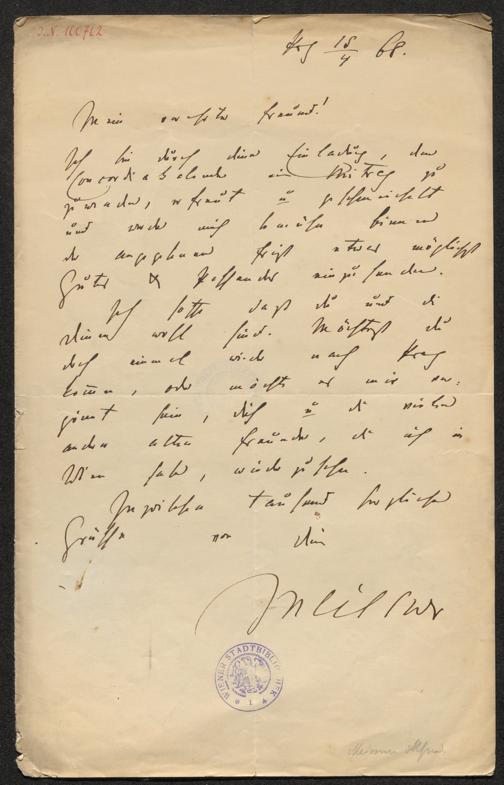 I.N. 100762
Prg 15/4 68.
Mein verehrter Freund!
Ich bin durch deine Einladung, dem
Concordia Kalender ein Mitarb zu
werden, erfreut u geschmeichelt
und werde mich bemühen binnen
der angegebenen Frist etwas möglichst
Gutes & Passendes einzusenden.
Ich hoffe daß du und die
Deinen wohl sind. Möchtest du
doch einmal wieder nach Prag
kommen, oder möchte es mir ver=
gönnt sein, dich u die vielen
andern alten Freunde, die ich in
Wien habe, wiederzusehen.
Inzwischen tausend herzliche
Grüße von dein
Meißner
WIENER STADTBIBLIOTHEK
Meissner Alfred